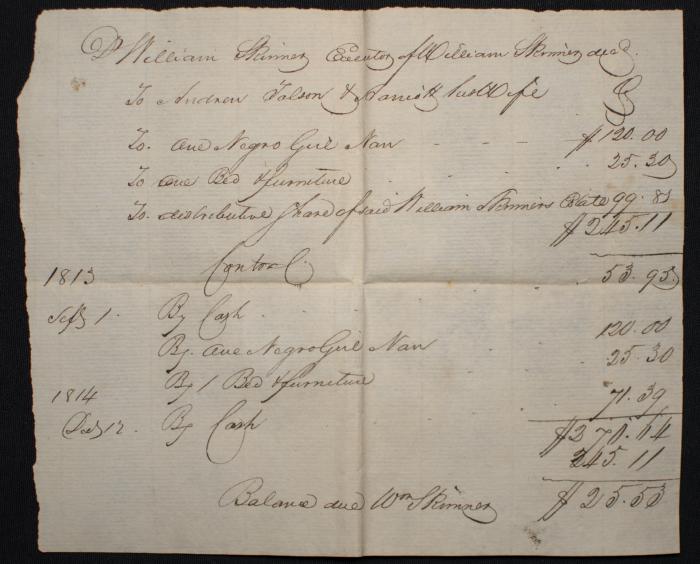 Dr William Skinner Executor of William Skinner decd.
To Andrew Tolson & his Wife Cr
To one Negro Girl Nan - - - $120.00
To one Bed & furniture . . 25.30
To distributive Share of said William Skinners Estate 99.81
$245.11
1813 Contra C.
Sept 1. By Cash . . . 53.95
By one Negro Girl Nan . . 120.00
By 1 Bed & furniture . . 25.30
1814
By Cash . . 71.39
$270.64
245.11
Balance due Wm Skinner $25.53